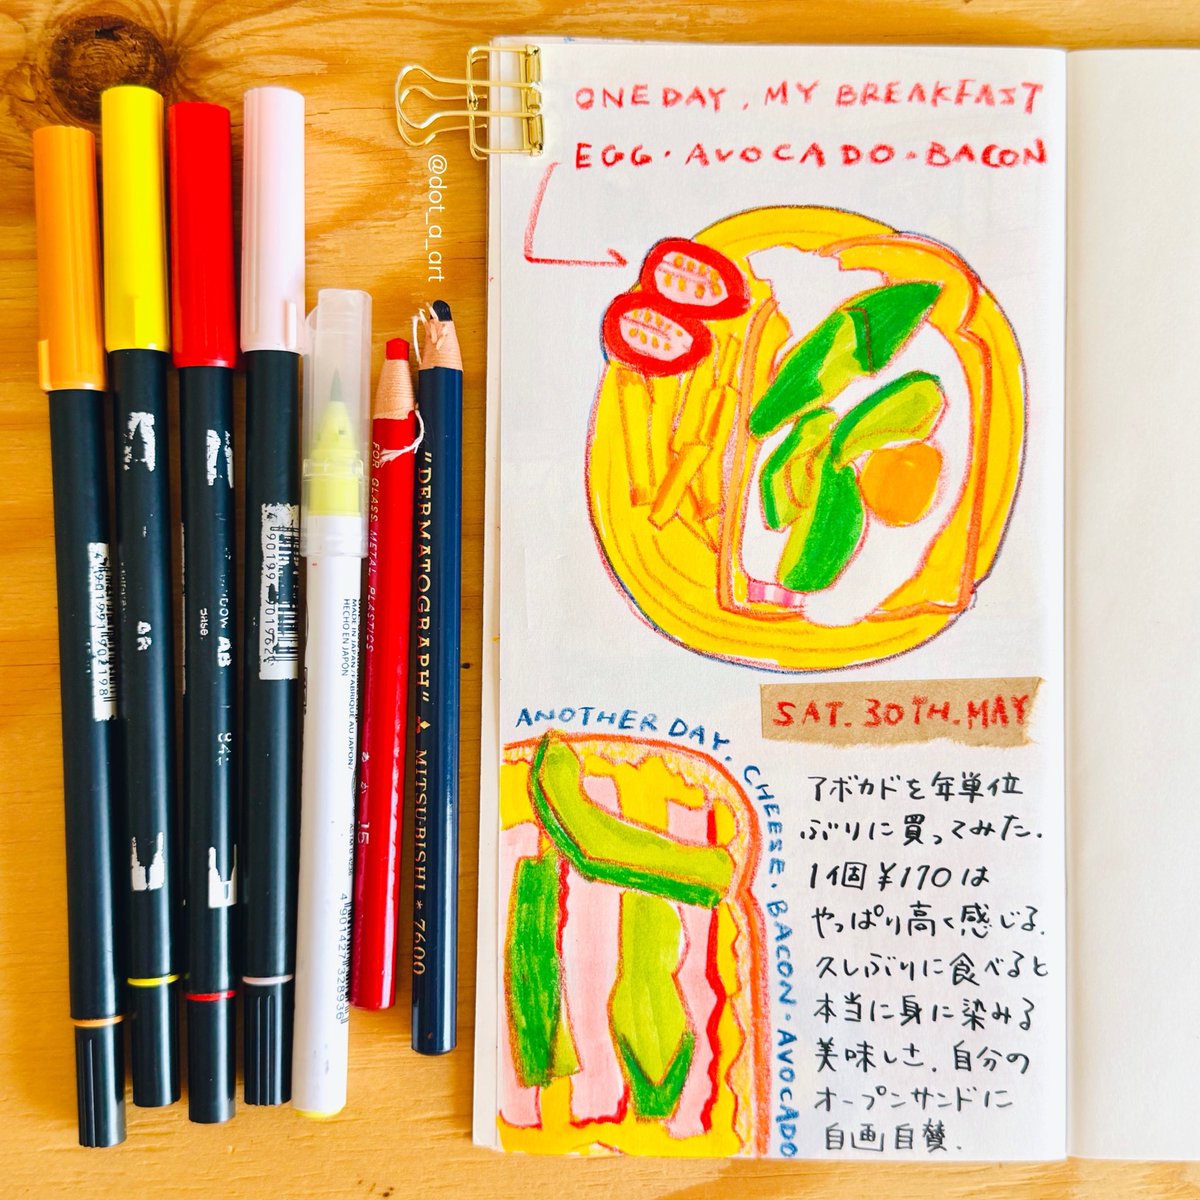 ONE DAY, MY BREAKFAST
EGG・AVOCADO・BACON
@dot_a_art
SAT. 30TH. MAY
ANOTHER DAY. CHEESE・BACON・AVOCADO
アボカドを年単位
ぶりに買ってみた.
1個¥170は
やっぱり高く感じる.
久しぶりに食べると
本当に身に染みる
美味しさ.自分の
オープンサンドに
自画自賛.
4901991902198
90199 9019620
MADE IN JAPAN/FABRIQUÉ AU JAPON/
HECHO EN JAPÓN
4901427328936
FOR GLASS METAL PLASTICS
あか 15
"DERMATOGRAPH" MITSU-BISHI * 7600